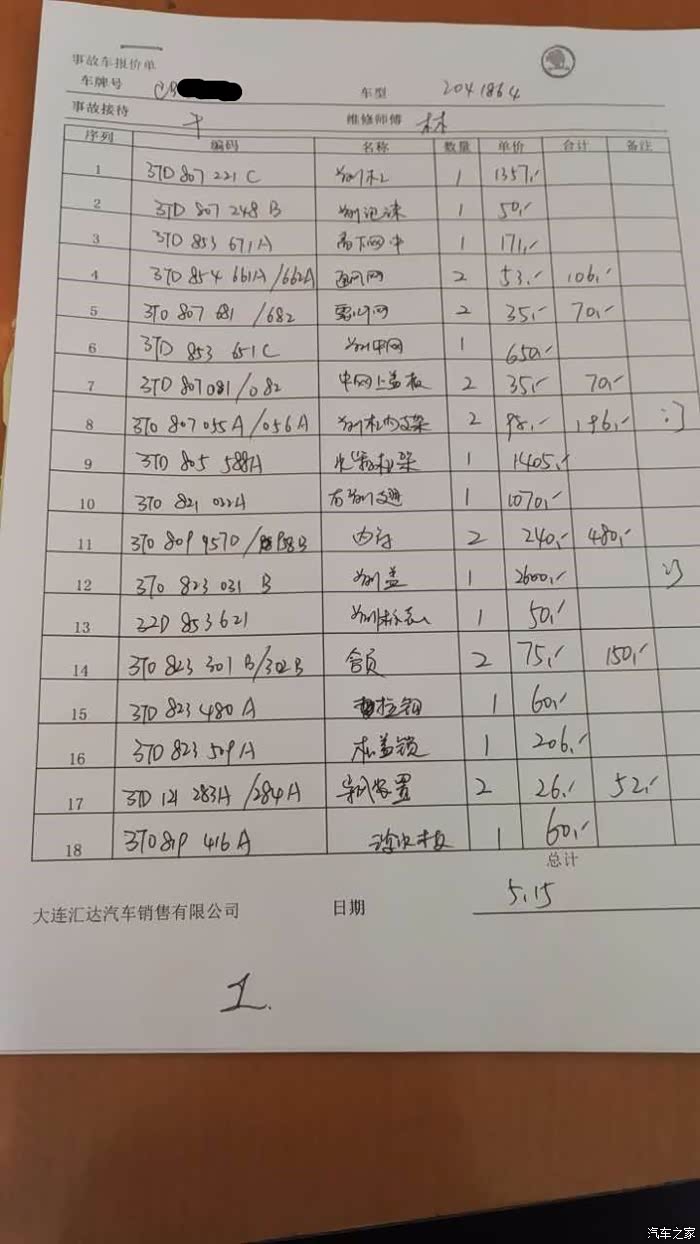 事故车报价单
车牌号 车型 2041864
事故接待 维修师傅 林
序列 编码 名称 数量 单价 合计 备注
1 3TD 807 221 C 前杠 1 1357,-
2 3TD 807 248 B 前泡沫 1 50,-
3 3TD 853 671A 前下网中 1 171,-
4 3TD 854 661A/662A 通风网 2 53,- 106,-
5 3T0 807 681 /682 雾灯网 2 35,- 70,-
6 3TD 853 651C 前中网 1 650,-
7 3TD 807081/082 中网上盖板 2 35,- 70,-
8 3T0 807055A/056A 前杠内支架 2 98,- 196,-
9 3TD 805 588A 水箱框架 1 1405,-
10 3T0 821 022A 右前翼 1 1070,-
11 3T0 809 957D/958B 内衬 2 240,- 480,-
12 3T0 823 031 B 前盖 1 2600,-
13 32D 853621 前标志 1 50,-
14 3T0 823 301B/302B 合页 2 75,- 150,-
15 3TD 823 480 A 拉钩 1 60,-
16 3TD 823 509A 机盖锁 1 206,-
17 3TD 121 283A/284A 导风装置 2 26,- 52,-
18 3T0819 416A 流水板 1 60,-
总计
大连汇达汽车销售有限公司 日期 5,15
1.
汽车之家